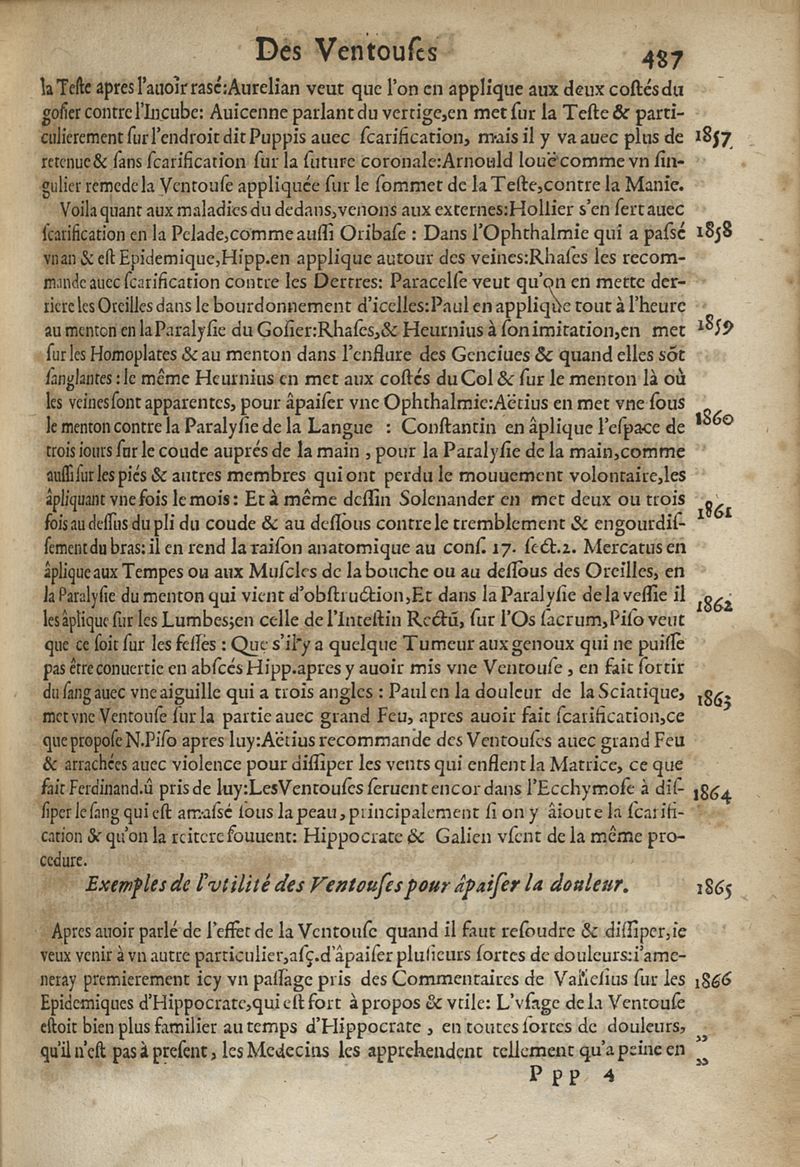 Des Ventouſes 487
la Teſte apres l'auoir rasé:Aurelian veut que l'on en applique aux deux coſtés du
goſier contre l'Incube: Auicenne parlant du vertige,en met ſur la Teſte & parti-
culierement ſur l'endroit dit Puppis auec ſcarification, mais il y va auec plus de 1857
retenue & ſans ſcarification ſur la ſuture coronale:Arnould louë comme vn ſin-
gulier remede la Ventouſe appliquée ſur le ſommet de la Teſte,contre la Manie.
Voila quant aux maladies du dedans,venons aux externes:Hollier s'en ſert auec
ſcarification en la Pelade,comme auſſi Oribaſe : Dans l'Ophthalmie qui a paſsé 1858
vn an & eſt Epidemique,Hipp.en applique autour des veines:Rhaſes les recom-
mande auec ſcarification contre les Dertres: Paracelſe veut qu'on en mette der-
riere les Oreilles dans le bourdonnement d'icelles:Paul en applique tout à l'heure
au menton en la Paralyſie du Goſier:Rhaſes,& Heurnius à ſon imitation,en met 1859
ſur les Homoplates & au menton dans l'enflure des Genciues & quand elles sõt
ſanglantes : le même Heurnius en met aux coſtés du Col & ſur le menton là où
les veines ſont apparentes, pour âpaiſer vne Ophthalmie:Aëtius en met vne ſous
le menton contre la Paralyſie de la Langue : Conſtantin en âplique l'eſpace de 1860
trois iours ſur le coude auprés de la main , pour la Paralyſie de la main,comme
auſſi ſur les piés & autres membres qui ont perdu le mouuement volontaire,les
âpliquant vne fois le mois : Et à même deſſin Solenander en met deux ou trois
fois au deſſus du pli du coude & au deſſous contre le tremblement & engourdiſ- 1861
ſement du bras: il en rend la raiſon anatomique au conſ. 17. ſect.2. Mercatus en
âplique aux Tempes ou aux Muſcles de la bouche ou au deſſous des Oreilles, en
la Paralyſie du menton qui vient d'obſtruction,Et dans la Paralyſie de la veſſie il
les âplique ſur les Lumbes;en celle de l'Inteſtin Rectũ, ſur l'Os ſacrum,Piſo veut 1862
que ce ſoit ſur les feſſes : Que s'il y a quelque Tumeur aux genoux qui ne puiſſe
pas être conuertie en abſcés Hipp.apres y auoir mis vne Ventouſe , en fait ſortir
du ſang auec vne aiguille qui a trois angles : Paul en la douleur de la Sciatique, 1863
met vne Ventouſe ſur la partie auec grand Feu, apres auoir fait ſcarification,ce
que propoſe N.Piſo apres luy:Aëtius recommande des Ventouſes auec grand Feu
& arrachées auec violence pour diſſiper les vents qui enflent la Matrice, ce que
fait Ferdinand.û pris de luy:Les Ventouſes ſeruent encor dans l'Ecchymoſe à diſ- 1864
ſiper le ſang qui eſt amaſsé ſous la peau, principalement ſi on y âioute la ſcarifi-
cation & qu'on la reitere ſouuent: Hippocrate & Galien vſent de la même pro-
cedure.
Exemples de l'vtilité des Ventouſes pour âpaiſer la douleur. 1865
Apres auoir parlé de l'effet de la Ventouſe quand il faut reſoudre & diſſiper,ie
veux venir à vn autre particulier,aſç.d'âpaiſer pluſieurs ſortes de douleurs:i'ame-
neray premierement icy vn paſſage pris des Commentaires de Valleſius ſur les 1866
Epidemiques d'Hippocrate,qui eſt fort à propos & vtile: L'vſage de la Ventouſe
eſtoit bien plus familier au temps d'Hippocrate , en toutes ſortes de douleurs, ,,
qu'il n'eſt pas à preſent , les Medecins les apprehendent tellement qu'a peine en ,,
P p p 4